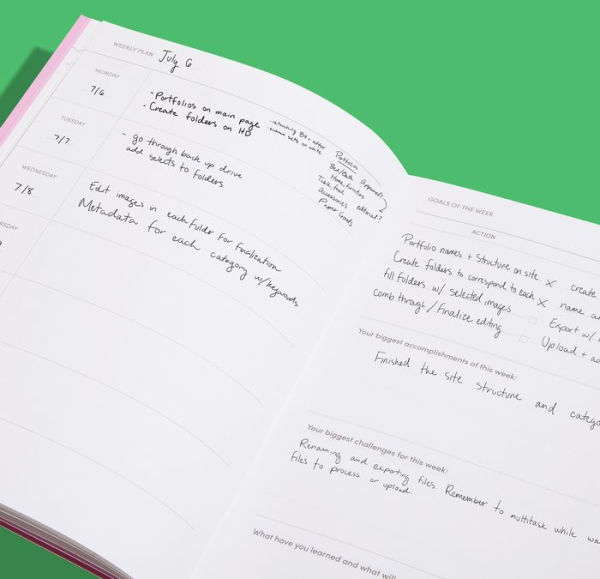 WEEKLY PLAN July 6
MONDAY
7/6
- Portfolios on main page
- Create folders on HD
Portfolio
Bed/Bath
Home, furniture
Table, Food
Accessories
Paper Goods
editorial?
TUESDAY
7/7
- go through back up drive
add selects to folders
WEDNESDAY
7/8
Edit images in each folder for finalization
Metadata for each category w/ keywords
GOALS OF THE WEEK
ACTION
Portfolio names + Structure on site X create
Create folders to correspond to each X name
fill folders w/ selected images Export w/
comb through / finalize editing Upload +
Your biggest accomplishments of this week:
Finished the site structure and
Your biggest challenges for this week:
Renaming and exporting files. Remember to multitask while
files to process or upload.
What have you learned and what will